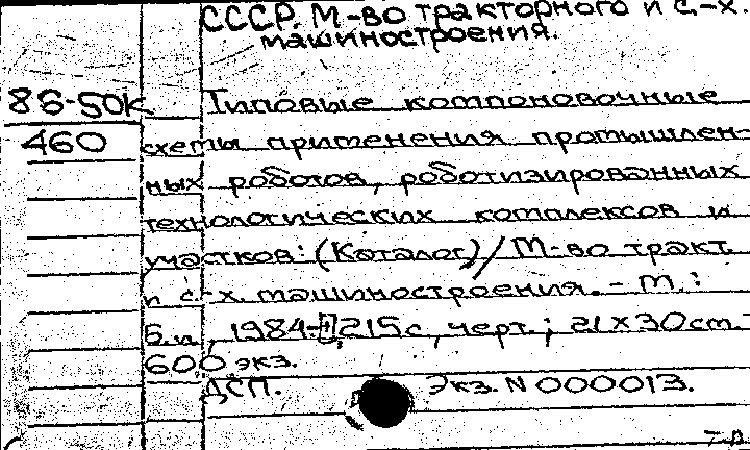 СССР. М-во тракторного и с.-х.
машиностроения.
86-50К Типовые компоновочные
460 схемы применения промышлен-
ных роботов, роботизированных
технологических комплексов и
участков: (Каталог) / М-во тракт.
и с.-х. машиностроения. - М.:
Б.и., 1984- 215с, черт.; 21×30см. -
600 экз.
ДСП. Экз. N 000013.